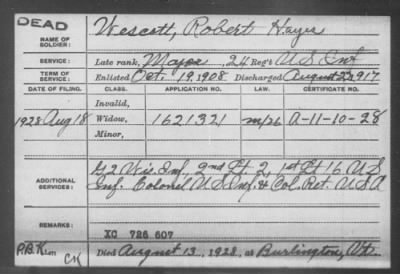 DEAD
NAME OF SOLDIER: Wescott, Robert Hayes
SERVICE: Late rank, Major, 24 Reg't U S Inf
TERM OF SERVICE: Enlisted Oct. 19, 1908 Discharged August 22, 1917
DATE OF FILING. CLASS. APPLICATION NO. LAW. CERTIFICATE NO.
Invalid,
1928 Aug 18 Widow, 1621321 A-11-10-28
Minor,
ADDITIONAL SERVICES: G 2 Wis. Inf, 2nd Lt. 2, 1st Lt 16 U.S
Inf. Colonel U S Inf. & Col. Ret. U S A
REMARKS: XC 786 607
Died August 13, 1928, at Burlington, Vt.
CK